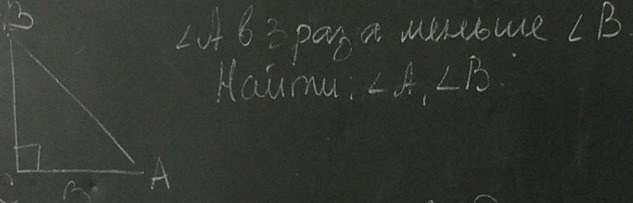 B
∠A в 3 раза меньше ∠B.
Найти: ∠A, ∠B.
A